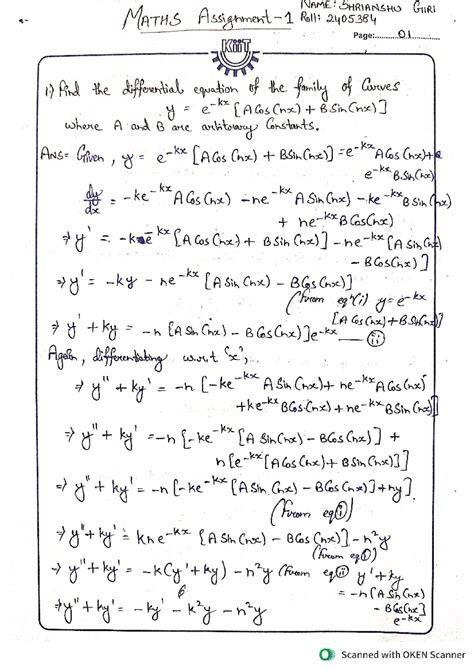 NAME: SHRIANSHU GIRI
MATHS Assignment-1 Roll: 2405384
Page:.......01
KiiT
1) Find the differential equation of the family of Curves
y = e^-kx [A Cos(nx) + B Sin(nx)]
where A and B are arbitorary Constants.
Ans= Given, y = e^-kx [A Cos(nx) + B Sin(nx)] = e^-kx A Cos(nx) +
e^-kx B Sin(nx)
dy/dx = -ke^-kx A Cos(nx) - ne^-kx A Sin(nx) - ke^-kx B Sin(nx)
+ ne^-kx B Cos(nx)
⇒ y' = -ke^-kx [A Cos(nx) + B Sin(nx)] - ne^-kx [A Sin(nx)
- B Cos(nx)]
⇒ y' = -ky - ne^-kx [A Sin(nx) - B Cos(nx)]
(from eqⁿ(i) y = e^-kx
[A Cos(nx) + B Sin(nx)]
⇒ y' + ky = -n [A Sin(nx) - B Cos(nx)] e^-kx — (ii)
Again, differentiating w.r.t 'x',
⇒ y'' + ky' = -n [-ke^-kx A Sin(nx) + ne^-kx A Cos(nx)
+ ke^-kx B Cos(nx) + ne^-kx B Sin(nx)]
⇒ y'' + ky' = -n [-ke^-kx [A Sin(nx) - B Cos(nx)] +
n[e^-kx [A Cos(nx) + B Sin(nx)]]
⇒ y'' + ky' = -n [-ke^-kx [A Sin(nx) - B Cos(nx)] + ny]
(from eq(i))
⇒ y'' + ky' = kne^-kx [A Sin(nx) - B Cos(nx)] - n²y
(from eq(i))
⇒ y'' + ky' = -k(y' + ky) - n²y (from eq(ii) y' + ky
= -n [A Sin(nx)
- B Cos(nx)]
e^-kx
⇒ y'' + ky' = -ky' - k²y - n²y
Scanned with OKEN Scanner